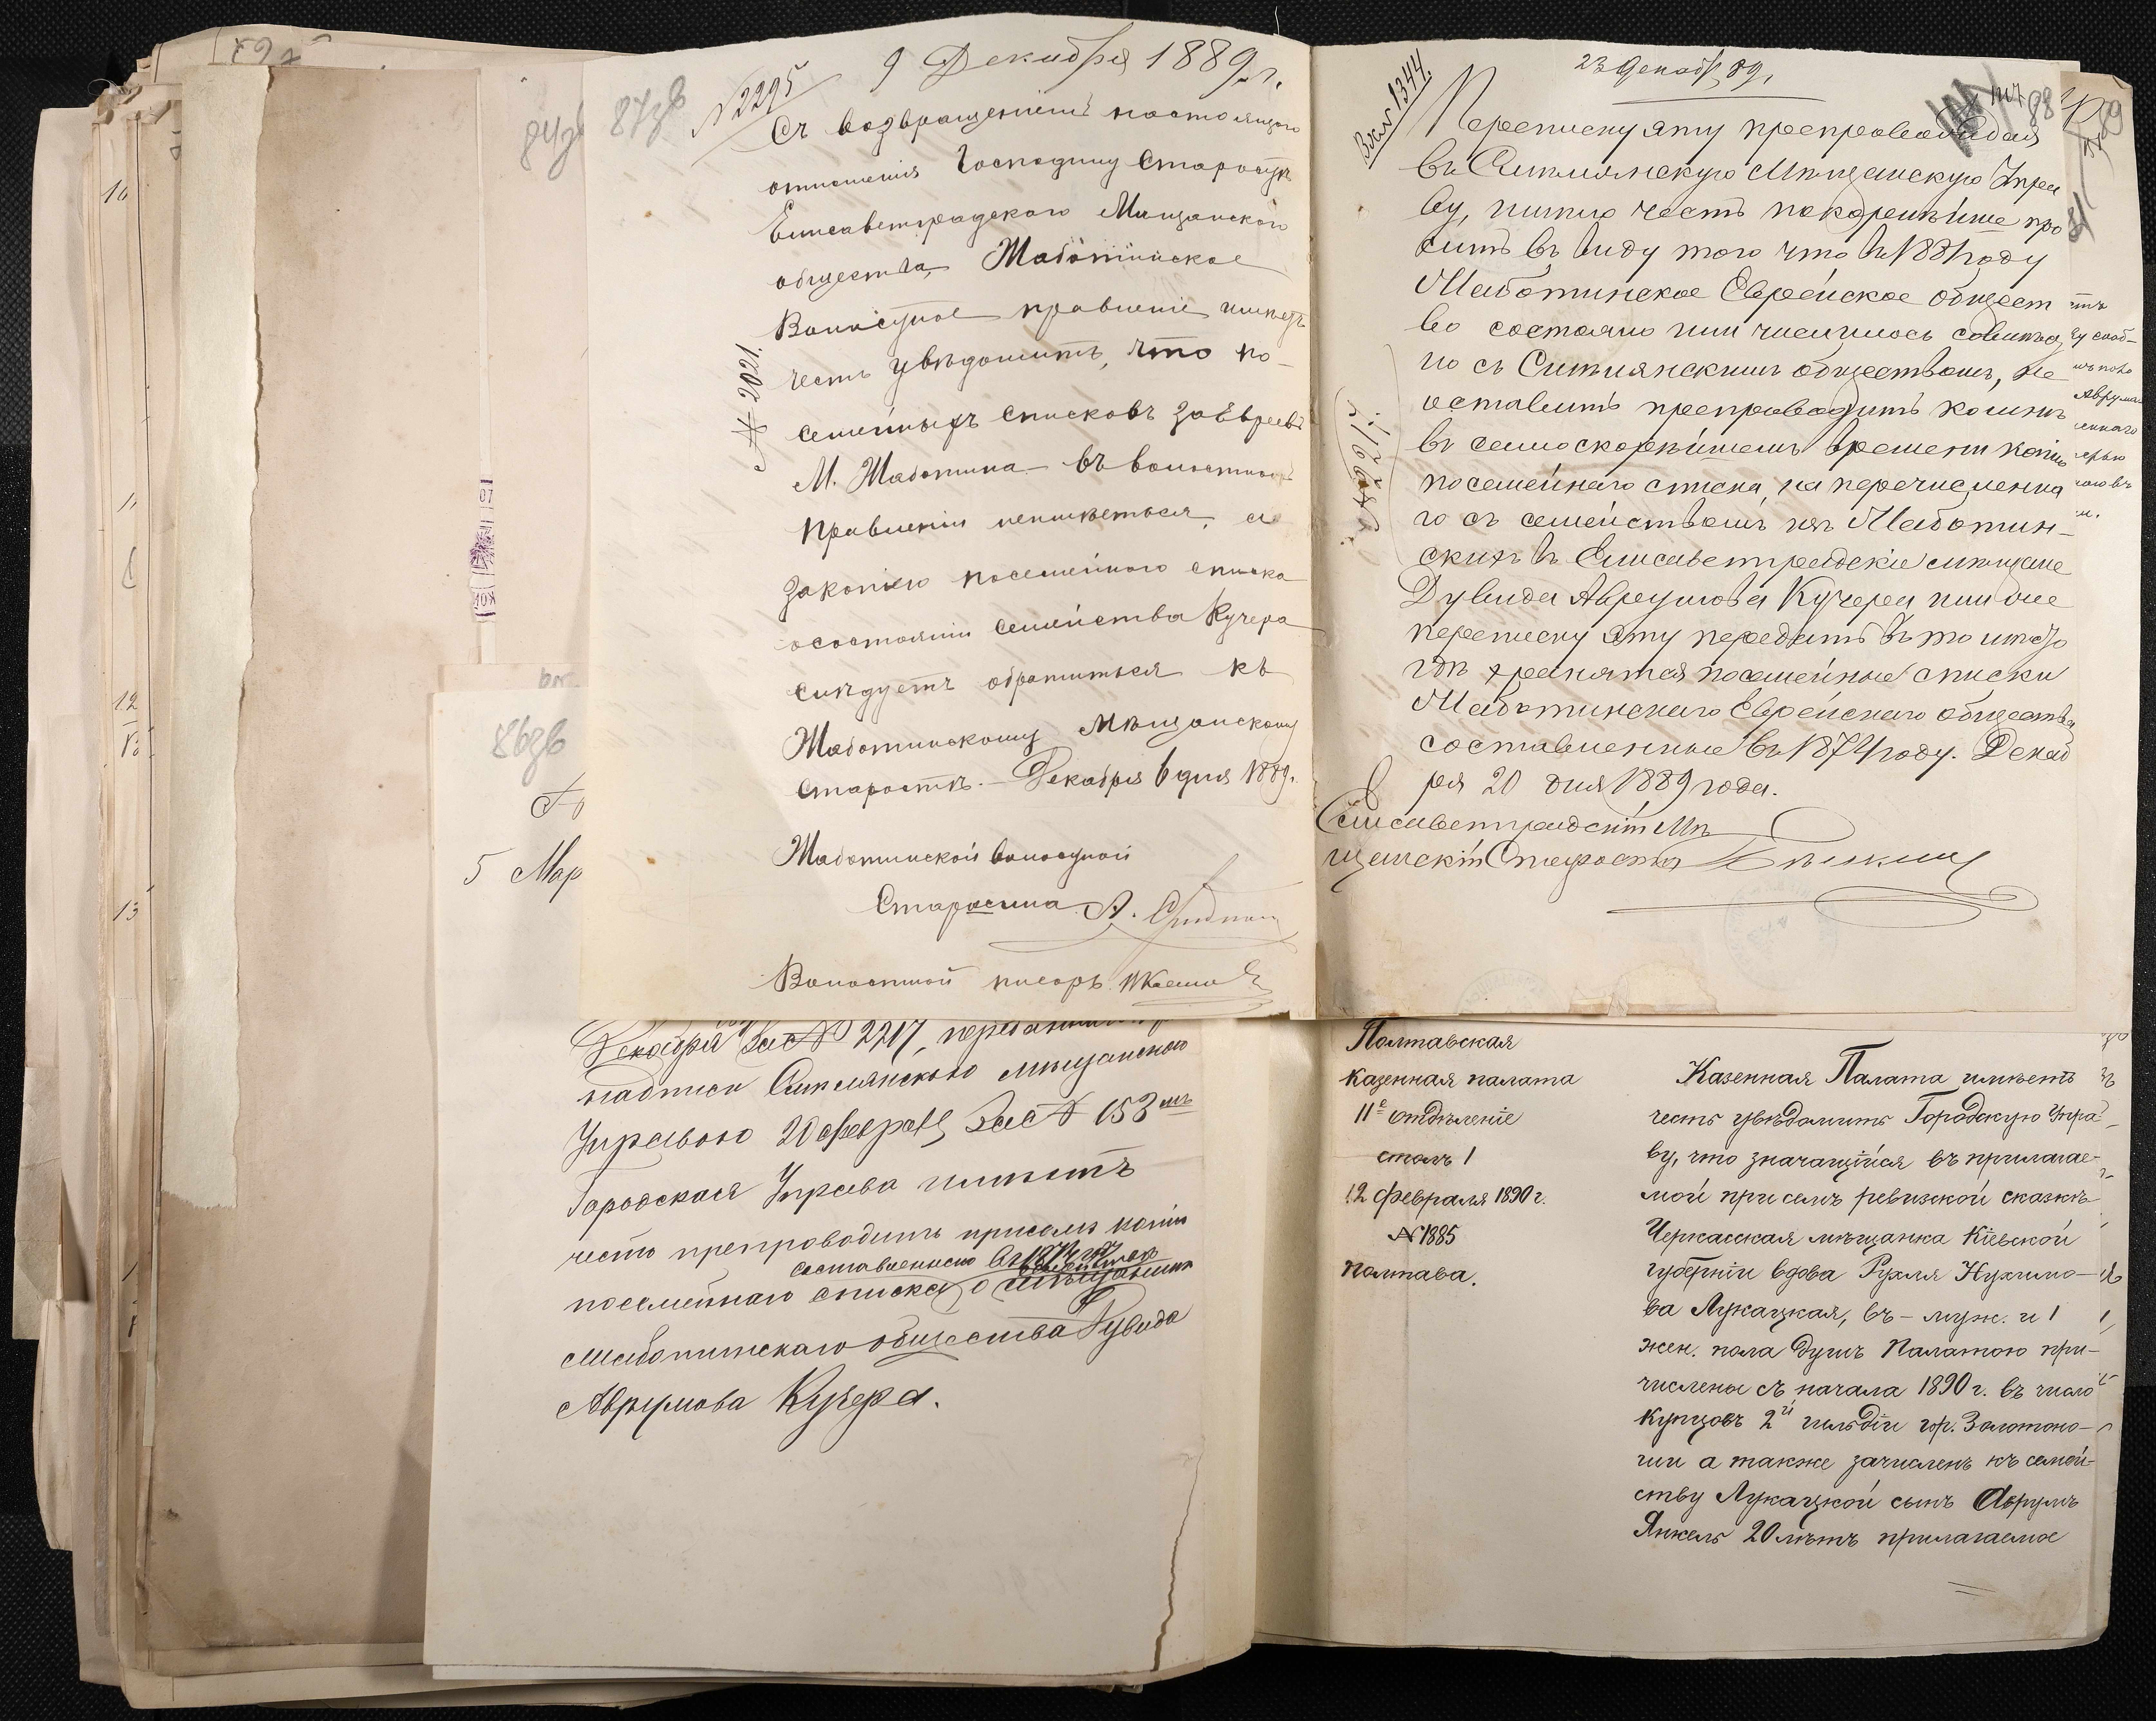 87зв
№ 2295
9 Декабря 1889 г.
Съ возвращеніемъ настоящаго
отношенія Господину Старостѣ
Елисаветградскаго Мищанскаго
общества, Жаботинское
Волостное правленіе имѣетъ
честь увѣдомить, что по-
семейныхъ списковъ заЕвреевъ
М. Жаботина - въ волостномъ
Правленіи неимѣеться, а
закопіею посемейного списка
осостояніи семейства Кучера
слѣдуетъ обратиться къ
Жаботинскому Мѣщанскому
Старостѣ. - Декабря 6 дня 1889г.
№ 2021.
Жаботинской волостной
Старшина А.
Волостной писарь
23 Декабр 89,
Вх. № 1344.
88
Переписку эту препровождая
въ Ситлянскую Мѣщанскую Упра
ву, имѣю честь покорнѣйше про
сить въ виду того что въ 1881 году
Жаботинское Еврейское общест
во состояло или числилось совмѣст
но съ Ситлянскимъ обществомъ, не
оставить препроводить ко мнѣ
въ самоскорѣйшемъ времени копію
посемейнаго списка, на перечисленна
го съ семействомъ изъ Жаботин-
скихъ въ Елисаветградскіе мѣщане
Дувида Аврумова Кучера или же
переписку эту передать въ то мѣсто
гдѣ хранятся посемейные списки
Жаботинскаго Еврейскаго общества
составленные въ 1874 году. Декаб
ря 20 дня 1889 года.
№ 2217.
Елисаветградскій Мѣ
щанскій Староста
84зв
86зв
5 Мар
10
11
12
13
Декабря за № 2217, переданный
надписи Ситлянскою мѣщанскою
Управою 20 февраля за № 153 мъ
Городская Управа имѣетъ
честь препроводить присемъ копію
составленнаго въ 1874 году
посемейнаго списка, о мѣщанинѣ
Жаботинскаго общества Дувида
Аврумова Кучера.
Полтавская
казенная палата
IIе отдѣленіе
столъ 1
12 февраля 1890 г.
№ 1885
Полтава.
Казенная Палата имѣетъ
честь увѣдомить Городскую Упра-
ву, что значащійся въ прилагае-
мой при семъ ревизской сказкѣ
Черкасская мѣщанка Кіевской
губерніи вдова Рухля Нухимо-
ва Лукацкая, въ - муж. и 1
жен. пола душъ Палатою при-
числены съ начала 1890 г. въ число
купцовъ 2й гильдіи гор. Золотоно-
ши а также зачисленъ къ семей-
ству Лукацкой сынъ Аврумъ
Янкель 20 лѣтъ прилагаемое